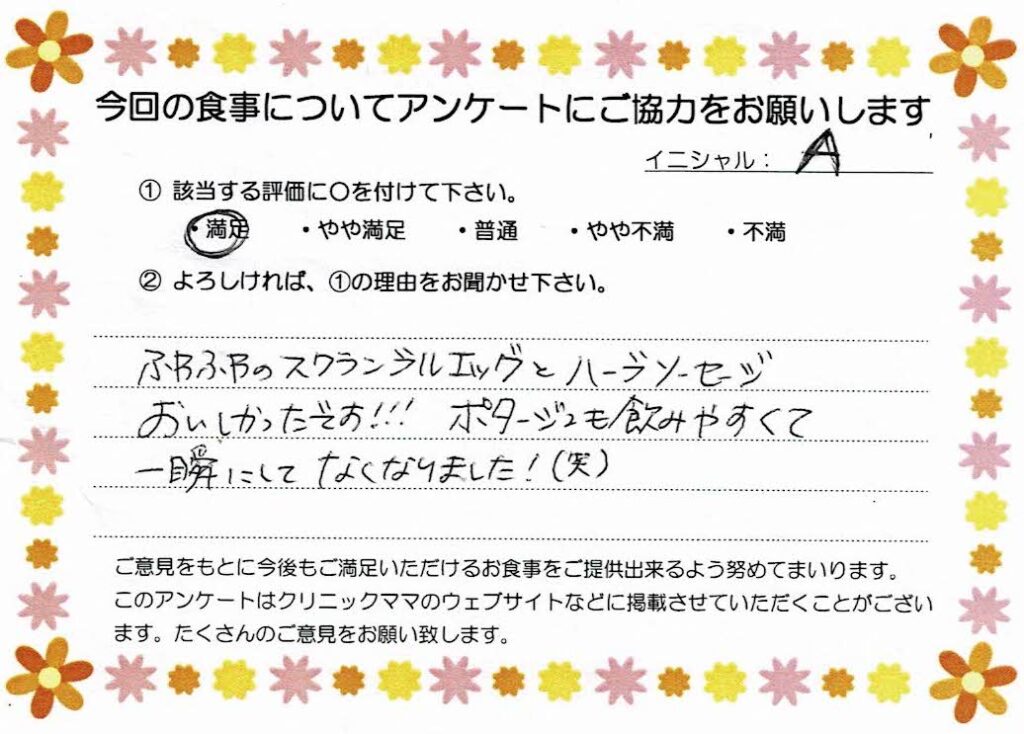 今回の食事についてアンケートにご協力をお願いします
イニシャル： A
① 該当する評価に〇を付けて下さい。
・満足 ・やや満足 ・普通 ・やや不満 ・不満
② よろしければ、①の理由をお聞かせ下さい。
ふわふわのスクランブルエッグとハーブソーセージ
おいしかったです!!! ポタージュも飲みやすくて
一瞬にしてなくなりました！(笑)
ご意見をもとに今後もご満足いただけるお食事をご提供出来るよう努めてまいります。
このアンケートはクリニックママのウェブサイトなどに掲載させていただくことがござい
ます。たくさんのご意見をお願い致します。